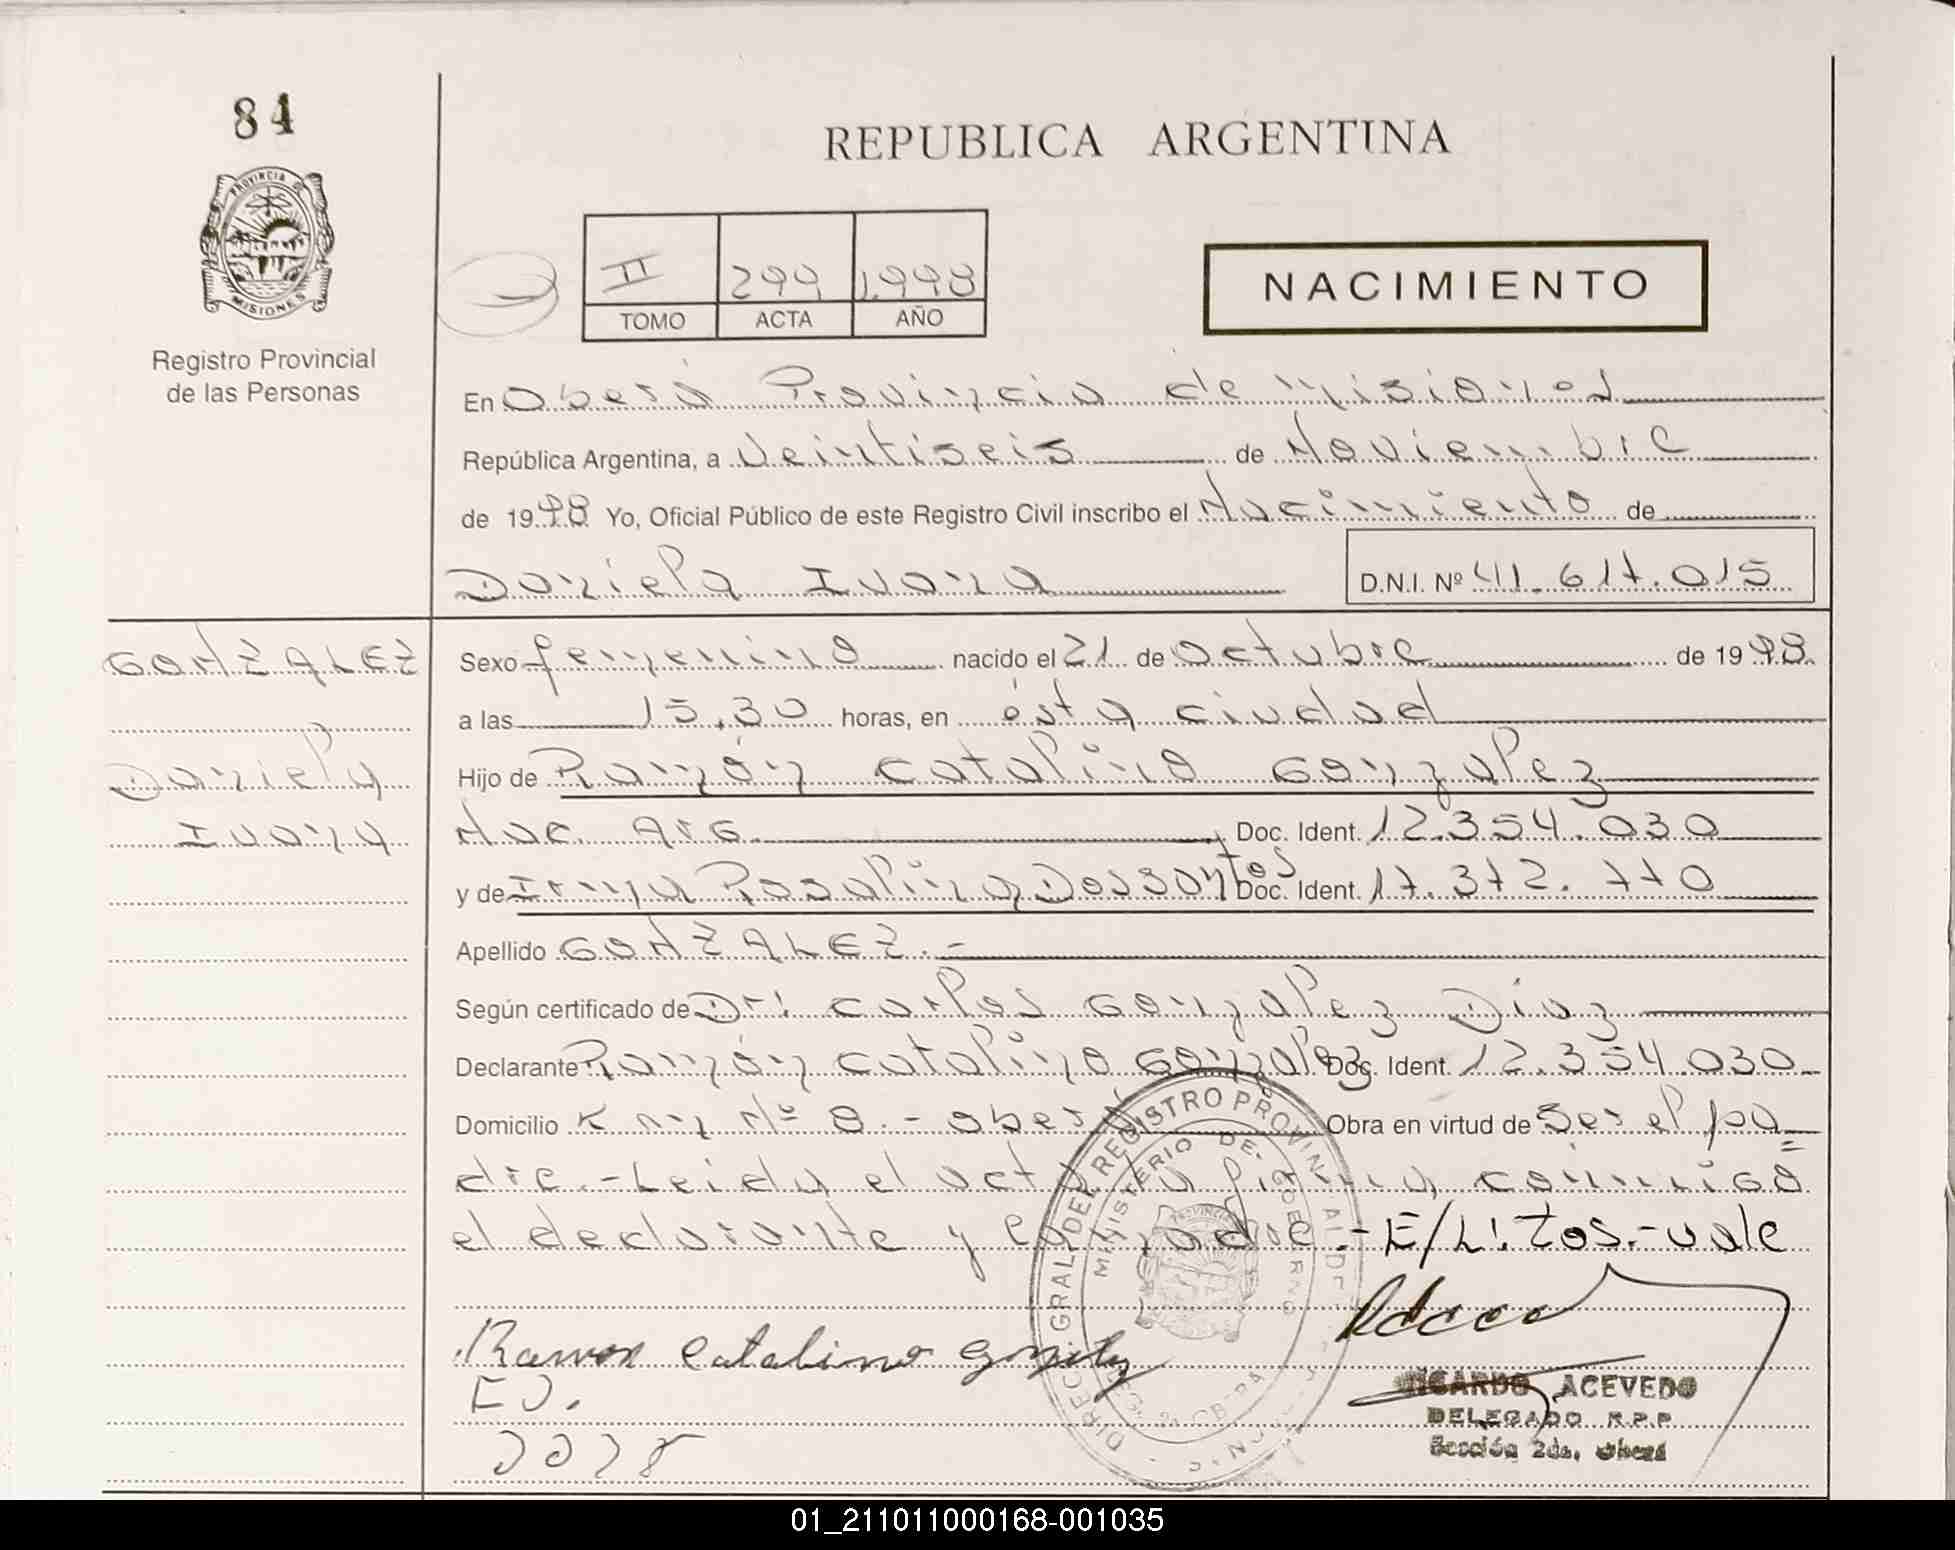 84
REPUBLICA ARGENTINA
PROVINCIA DE
MISIONES
Registro Provincial
de las Personas
II 299 1.998
TOMO ACTA AÑO
NACIMIENTO
En Oberá Provincia de Misiones
República Argentina, a Veintiseis de Noviembre
de 1998 Yo, Oficial Público de este Registro Civil inscribo el Nacimiento de
Daniela Ivana D.N.I. Nº 41.617.015
GONZALEZ
Daniela
Ivana
Sexo femenino nacido el 21 de Octubre de 1998.
a las 15.30 horas, en ésta ciudad
Hijo de Ramón Catalino Gonzalez
Nac. Arg. Doc. Ident. 12.354.030
y de Irma Rosalina Dos Santos Doc. Ident. 17.372.770
Apellido GONZALEZ.-
Según certificado de Dr: Carlos Gonzalez Diaz
Declarante Ramón Catalino Gonzalez Doc. Ident. 12.354.030
Domicilio Km Nº 8.- Oberá Obra en virtud de Ser el pa=
dre.- Leida el acta la firma conmigo
el declarante y la madre.- E/L: tos.- vale
Ramon Catalino
RICARDO ACEVEDO
DELEGADO R.P.P
Sección 2da. Oberá
DIREC. GRAL. DEL REGISTRO PROVINCIAL DE
MINISTERIO DE GOBIERNO
01_211011000168-001035